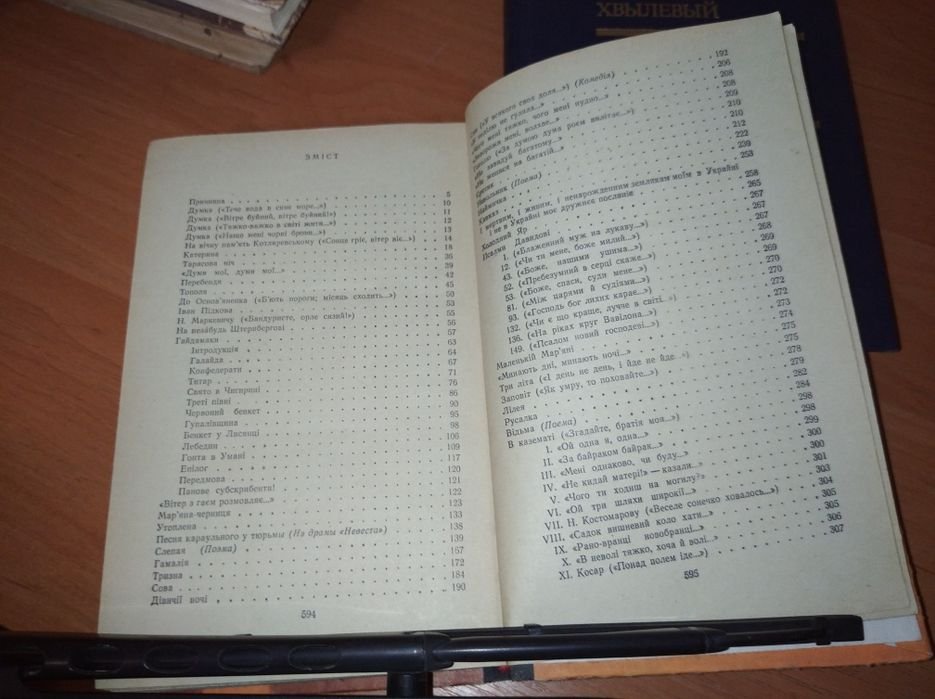 ХВЫЛЕВЫЙ
ЗМІСТ
Причинна 5
Думка («Тече вода в синє море...») 10
Думка («Вітре буйний, вітре буйний!») 11
Думка («Тяжко-важко в світі жити...») 12
Думка («Нащо мені чорні брови...») 13
На вічну пам'ять Котляревському («Сонце гріє, вітер віє...») 14
Катерина 18
Тарасова ніч 36
«Думи мої, думи мої...» 39
Перебендя 42
Тополя 45
До Основ'яненка («Б'ють пороги; місяць сходить...») 50
Іван Підкова 53
Н. Маркевичу («Бандуристе, орле сизий!») 55
На незабудь Штернбергові 56
Гайдамаки 57
Інтродукція 63
Галайда 64
Конфедерати 67
Титар 71
Свято в Чигирині 76
Треті півні 86
Червоний бенкет 90
Гупалівщина 95
Бенкет у Лисянці 98
Лебедин 106
Гонта в Умані 109
Епілог 117
Передмова 120
Панове субскрибенти! 121
«Вітер з гаєм розмовляє...» 122
Мар'яна-черниця 123
Утоплена 133
Песня караульного у тюрьмы (Из драмы «Невеста») 138
Слепая (Поэма) 139
Гамалія 167
Тризна 172
Сова 184
Дівичії ночі 190
594
(«У всякого своя доля...») (Комедія) 192
неділю не гуляла...» 206
«Чого мені тяжко, чого мені нудно...» 208
«Заворожи мені, волхве...» 208
Гоголю («За думою дума роєм вилітає...») 209
«Не завидуй багатому...» 210
«Не женися на багатій...» 210
Єретик 212
Невольник (Поема) 222
Наймичка
Кавказ 253
І мертвим, і живим, і ненарожденним землякам моїм в Україні
і не в Україні моє дружнєє посланіє 258
Холодний Яр 265
Псалми Давидові 267
1. («Блаженний муж на лукаву...») 267
12. («Чи ти мене, боже милий...») 267
43. («Боже, нашими ушима...») 268
52. («Пребезумний в серці скаже...») 269
53. («Боже, спаси, суди мене...») 269
81. («Між царями й судіями...») 270
93. («Господь бог лихих карає...») 270
132. («Чи є що краще, лучче в світі...») 271
136. («На ріках круг Вавілона...») 272
149. («Псалом новий господеві...») 272
Маленькій Мар'яні 273
«Минають дні, минають ночі...» 274
Три літа («І день не день, і йде не йде...») 275
Заповіт («Як умру, то поховайте...») 275
Лілея 278
Русалка 279
Відьма (Поема) 282
В казематі («Згадайте, братія моя...») 284
I. «Ой одна я, одна...» 298
II. «За байраком байрак...» 298
III. «Мені однаково, чи буду...» 299
IV. «Не кидай матері!» — казали...» 300
V. «Чого ти ходиш на могилу?» 300
VI. «Ой три шляхи широкії...» 301
VII. Н. Костомарову («Веселе сонечко ховалось...») 303
VIII. «Садок вишневий коло хати...» 304
IX. «Рано-вранці новобранці...» 305
X. «В неволі тяжко, хоча й волі...» 305
XI. Косар («Понад полем іде...») 306
307
595